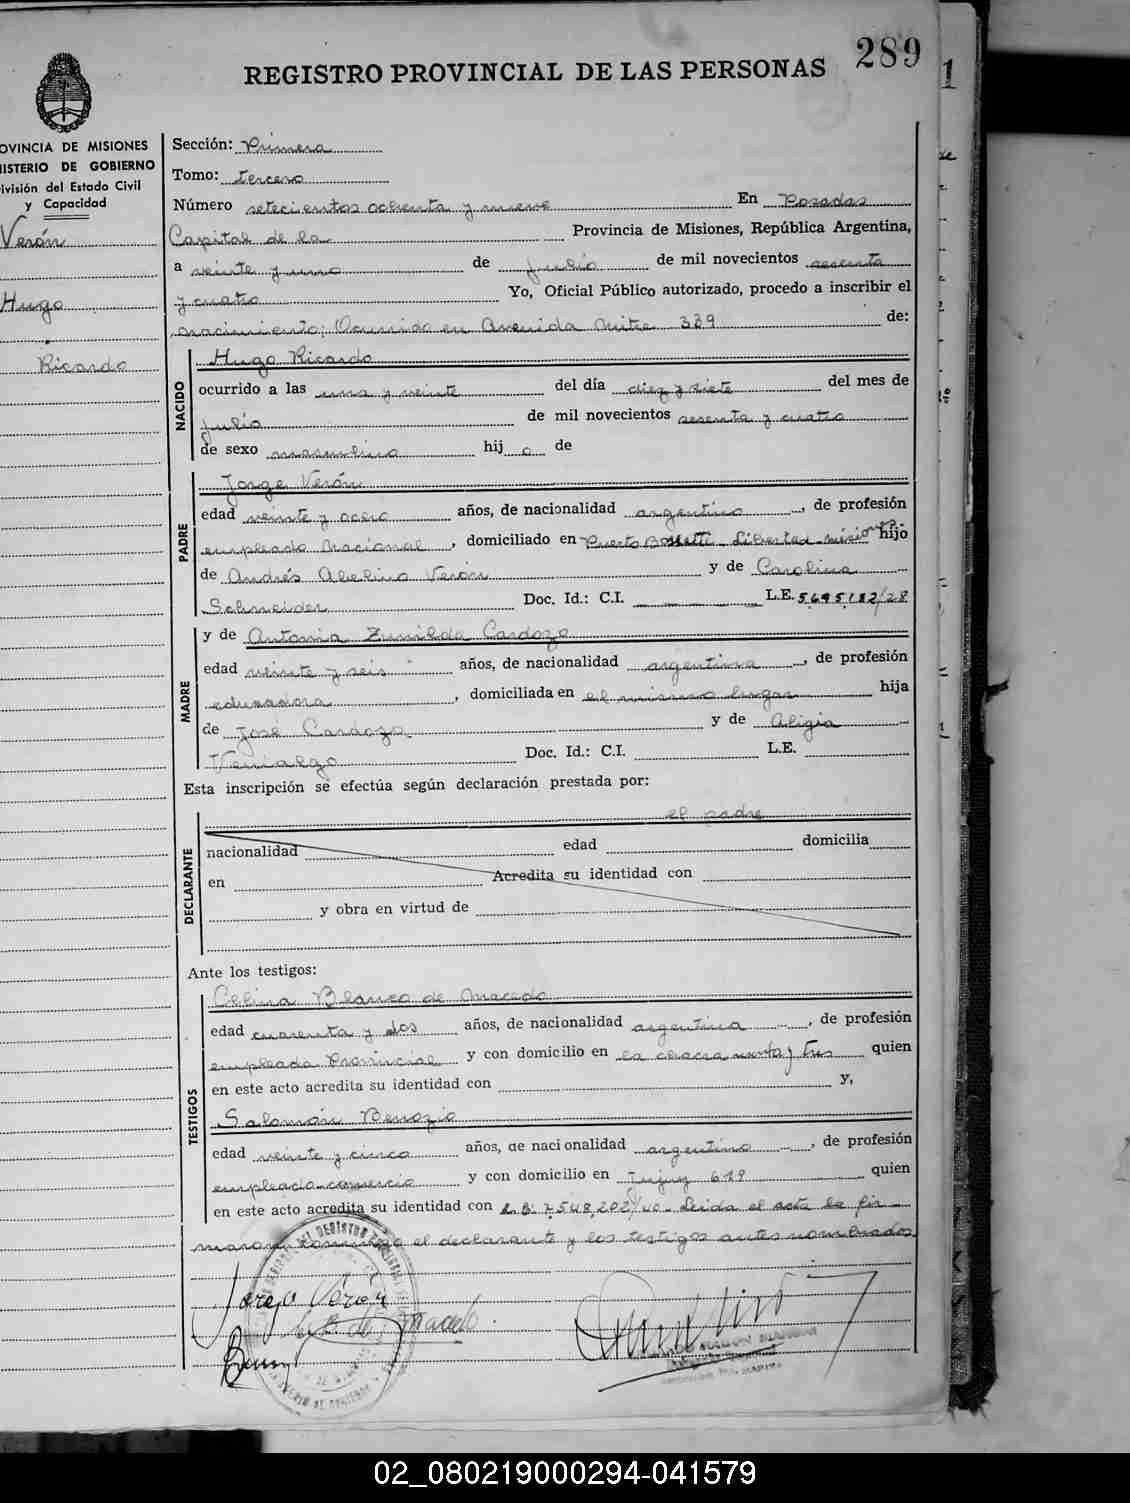 289
REGISTRO PROVINCIAL DE LAS PERSONAS
OVINCIA DE MISIONES
NISTERIO DE GOBIERNO
ivisión del Estado Civil
y Capacidad
Verón
Hugo
Ricardo
Sección: Primera
Tomo: tercero
Número setecientos ochenta y nueve En Posadas
Capital de la Provincia de Misiones, República Argentina,
a veinte y uno de Julio de mil novecientos sesenta
y cuatro Yo, Oficial Público autorizado, procedo a inscribir el
nacimiento; Ocurrido en Avenida Mitre 339 de:
NACIDO
Hugo Ricardo
ocurrido a las una y veinte del día diez y siete del mes de
Julio de mil novecientos sesenta y cuatro
de sexo masculino hij o de
PADRE
Jorge Verón
edad veinte y ocho años, de nacionalidad argentino, de profesión
empleado Nacional, domiciliado en Puerto Bossetti - Libertad - Misiones hijo
de Andrés Abelino Verón y de Carolina
Schneider Doc. Id.: C.I. L.E. 5.695.182/28
MADRE
y de Antonia Zunilda Cardozo
edad veinte y seis años, de nacionalidad argentina, de profesión
educadora, domiciliada en el mismo lugar hija
de José Cardozo y de Aligia
Vernalgo Doc. Id.: C.I. L.E.
Esta inscripción se efectúa según declaración prestada por:
DECLARANTE
el padre
nacionalidad edad domicilia
en Acredita su identidad con
y obra en virtud de
Ante los testigos:
TESTIGOS
Celina Blanco de Macedo
edad cuarenta y dos años, de nacionalidad argentina, de profesión
empleada Provincial y con domicilio en la chacra y tres quien
en este acto acredita su identidad con y,
Salomón Benozio
edad veinte y cinco años, de nacionalidad argentino, de profesión
empleado comercio y con domicilio en Jujuy 619 quien
en este acto acredita su identidad con L.E. 7.548.202/40 - Leida el acta la fir-
maron conmigo el declarante y los testigos antes nombrados.
Jorge Verón
de Macedo
02_080219000294-041579